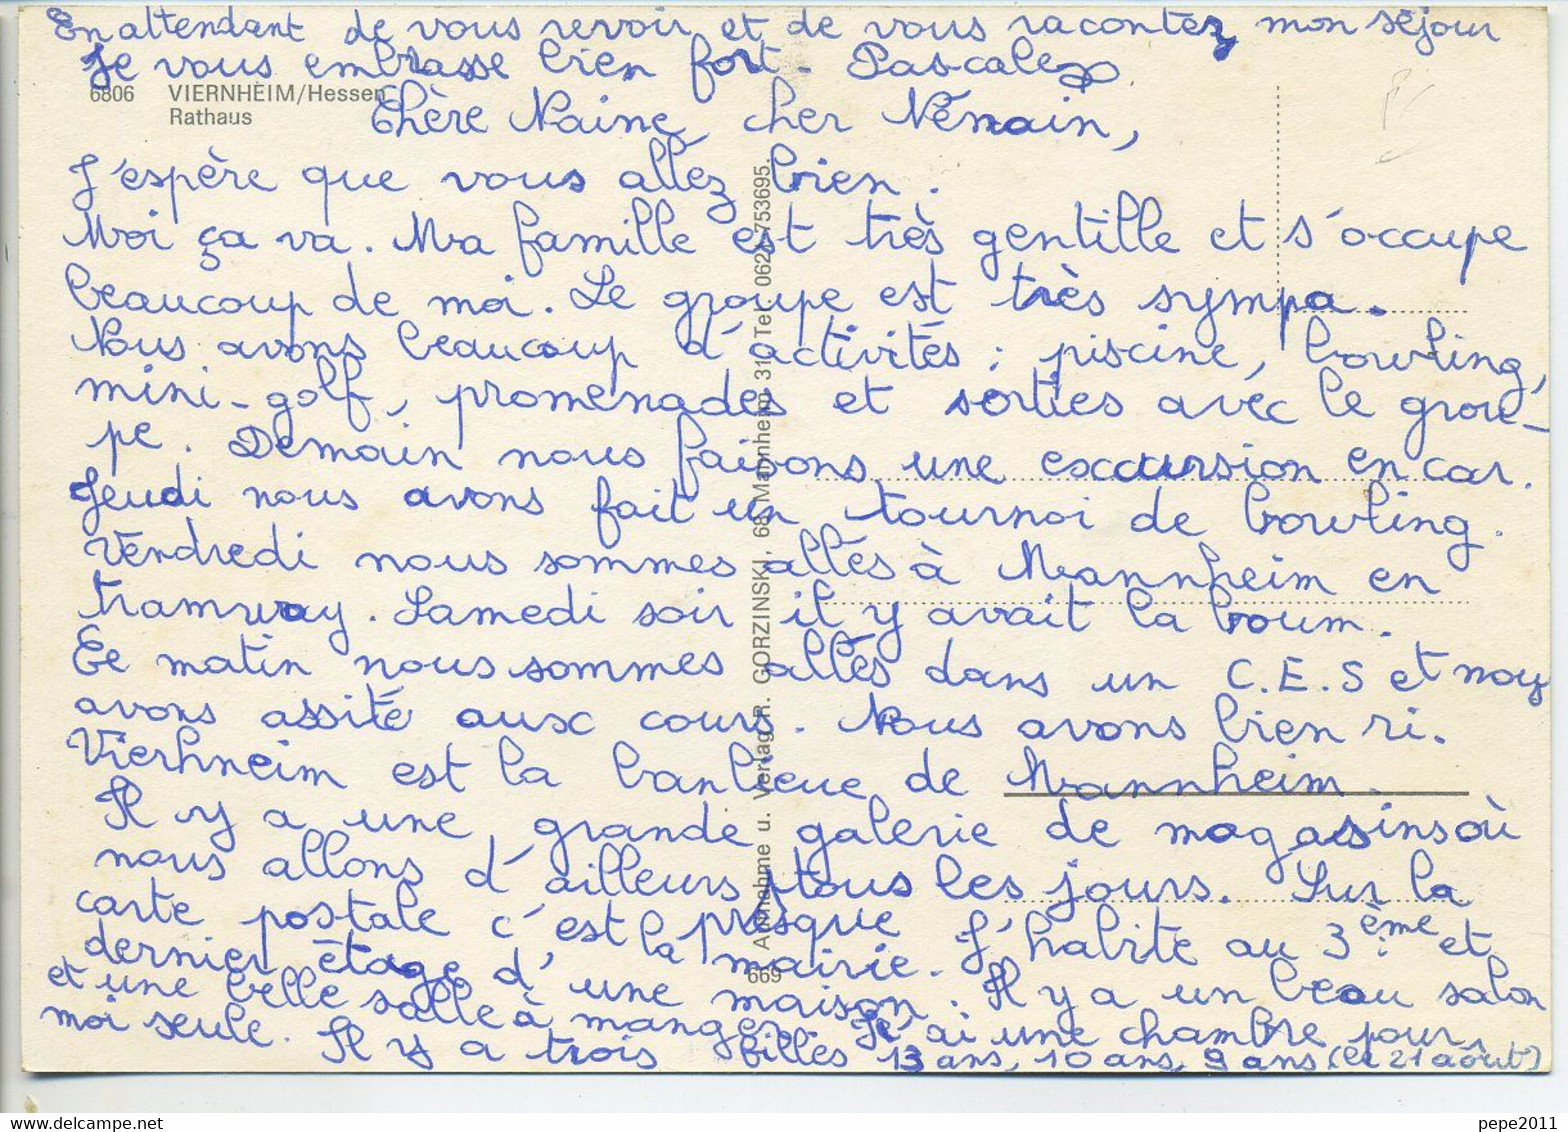 En attendant de vous revoir et de vous racontez mon séjour
Je vous embrasse bien fort. Pascale
6806 VIERNHEIM/Hessen
Rathaus
Chère Naine, cher Nénain,
J'espère que vous allez bien.
Moi ça va. Ma famille est très gentille et s'occupe
beaucoup de moi. Le groupe est très sympa.
Nous avons beaucoup d'activités : piscine, bowling,
mini-golf, promenades et sorties avec le grou-
pe. Demain nous faisons une excursion en car.
Jeudi nous avons fait un tournoi de bowling.
Vendredi nous sommes allés à Mannheim en
tramway. Samedi soir il y avait la boum.
Ce matin nous sommes allés dans un C.E.S et nous
avons assité aux cours. Nous avons bien ri.
Vierhneim est la banlieue de Mannheim.
Il y a une grande galerie de magasins où
nous allons d'ailleurs presque tous les jours. Sur la
carte postale c'est la mairie. J'habite au 3ème et
dernier étage d'une maison. Il y a un beau salon
et une belle salle à manger. J'ai une chambre pour
moi seule. Il y a trois filles 13 ans, 10 ans, 9 ans (le 21 août)
669 Aufnahme u. Verlag R. GORZINSKI, 68 Mannheim 31, Tel. 0621-753695.
pepe2011